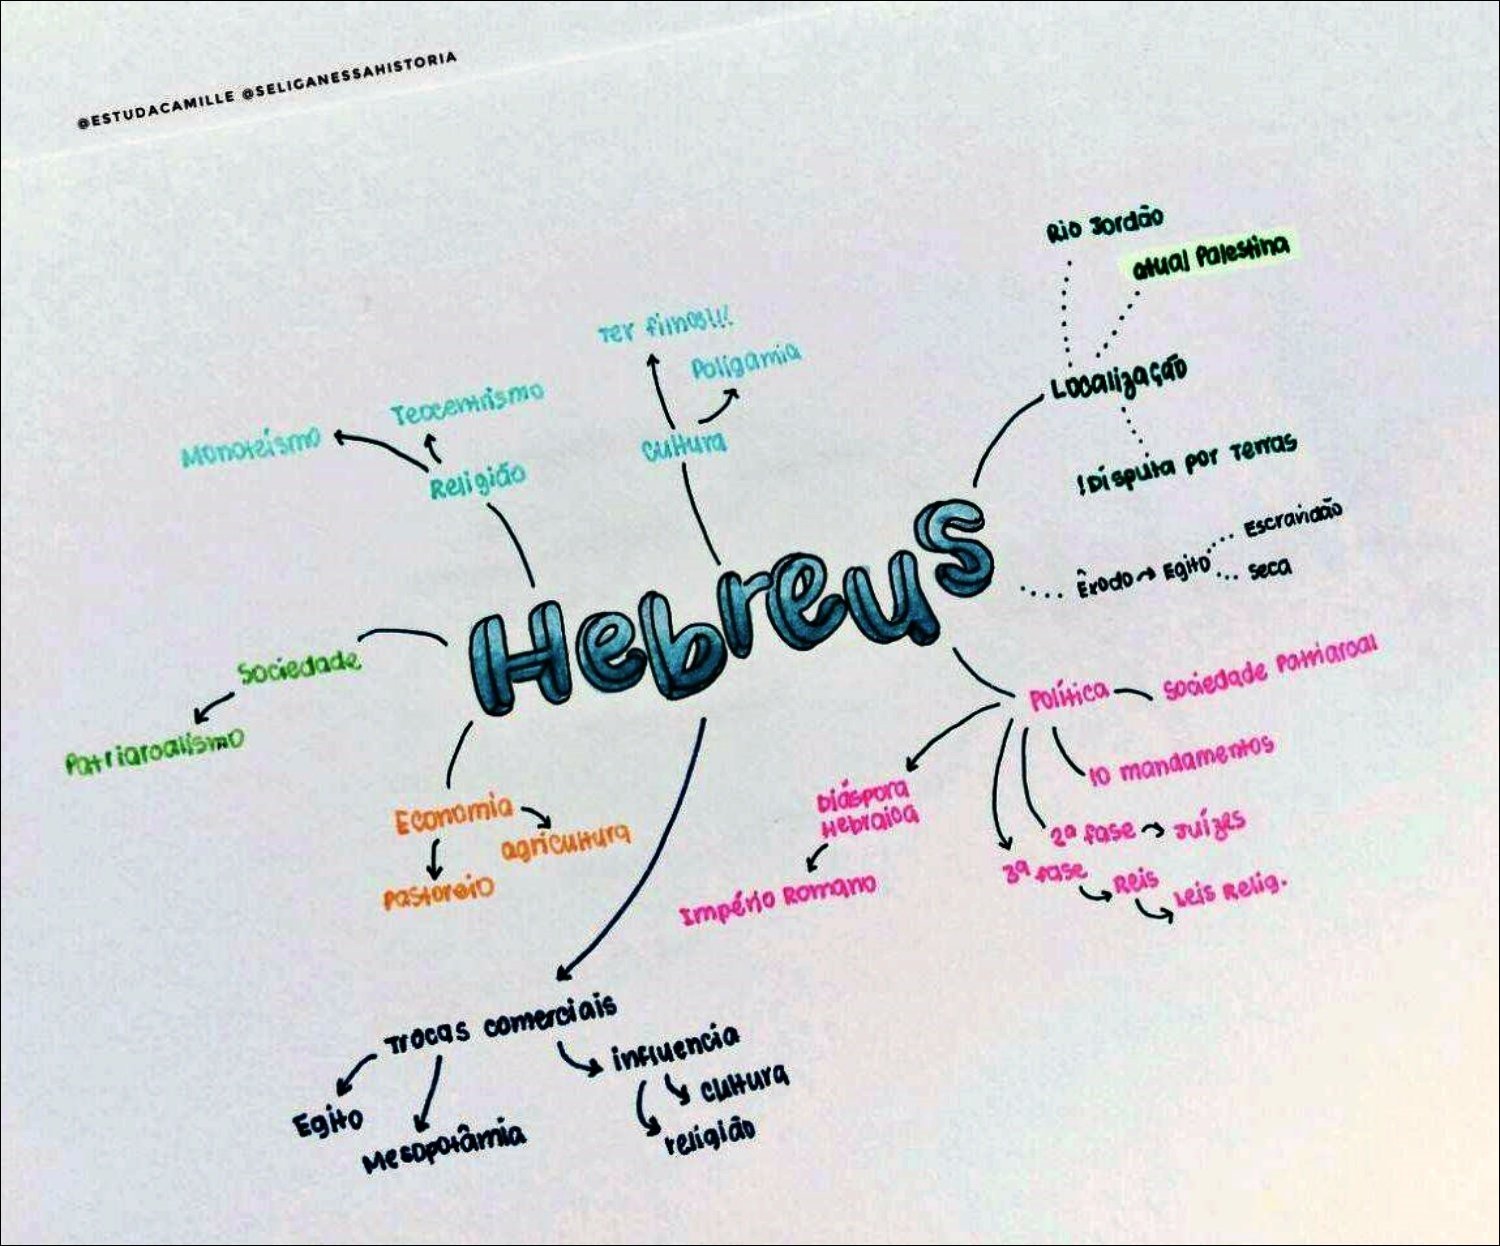 @ESTUDACAMILLE @SELIGANESSAHISTORIA
Rio Jordão
atual Palestina
Localização
!Disputa por Terras
Ter filhos!!!
Poligamia
Cultura
Teocentrismo
Monoteísmo
Religião
Hebreus
Êxodo → Egito
Escravidão
seca
Sociedade
Patriarcalismo
Política
Sociedade Patriarcal
10 mandamentos
2ª fase → Juízes
3ª fase
Reis
Leis Relig.
Diáspora
Hebraica
Império Romano
Economia
agricultura
Pastoreio
Trocas comerciais
Egito
Mesopotâmia
influencia
cultura
religião